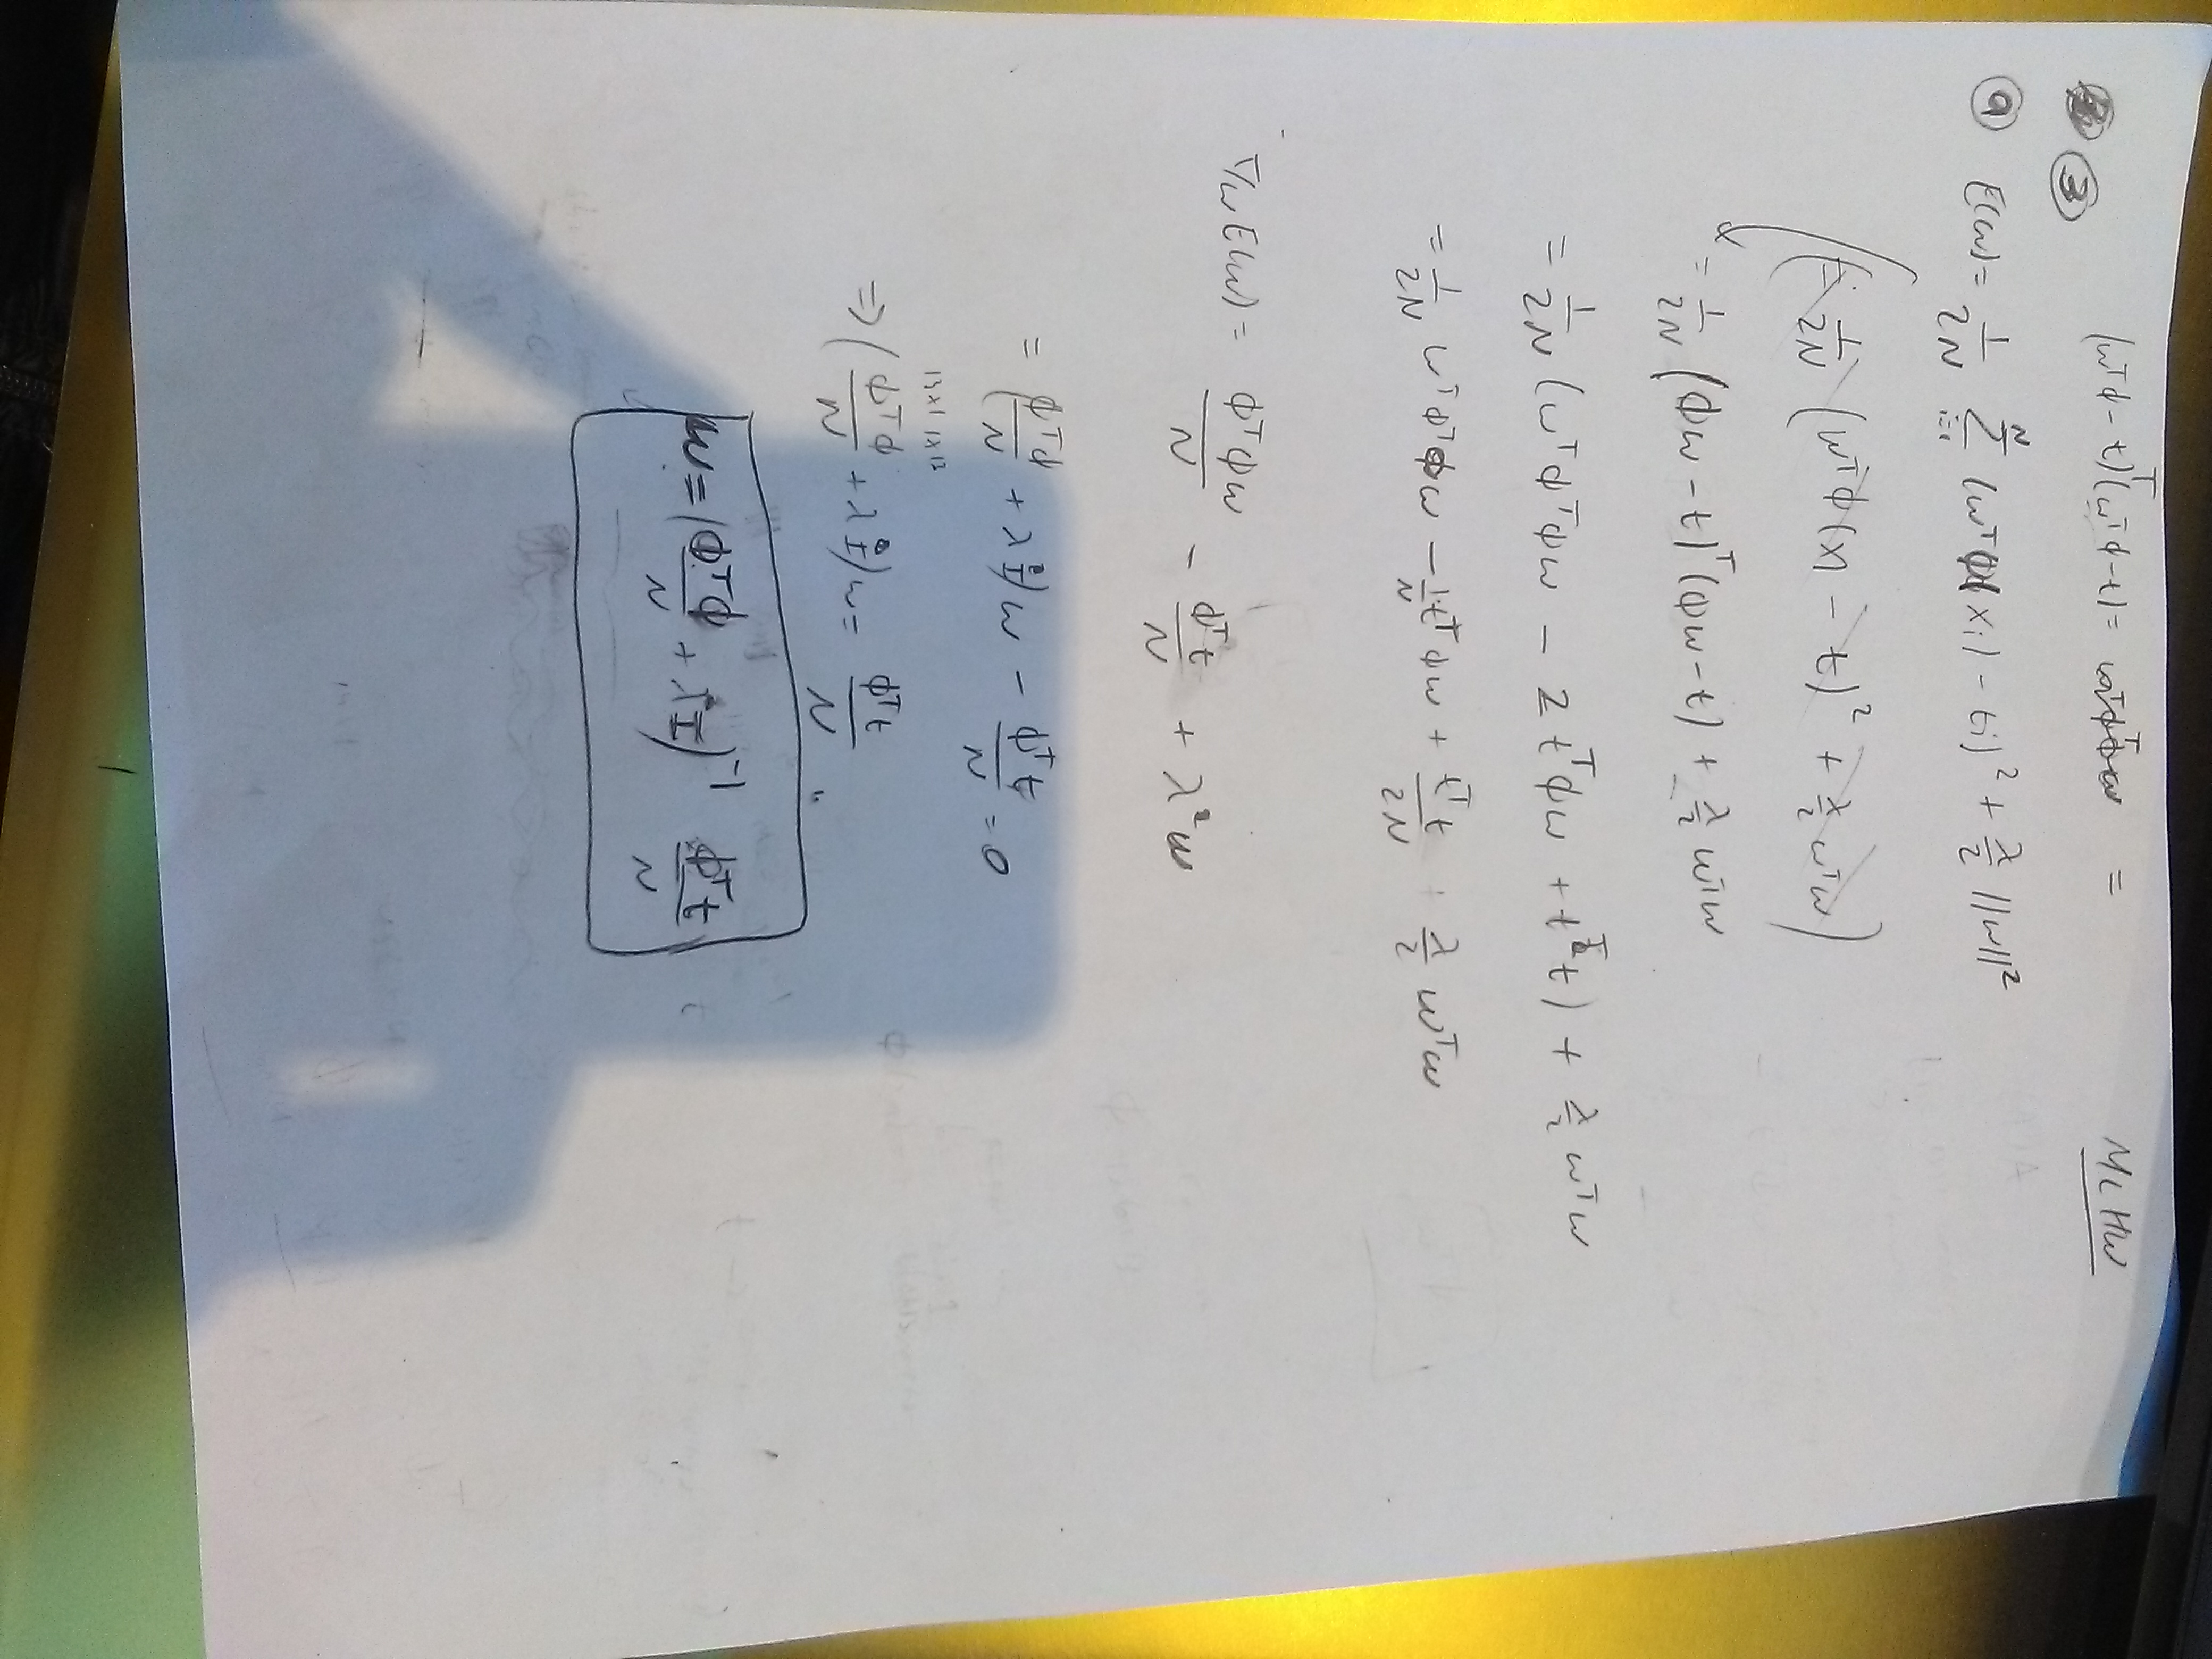 (wᵀϕ - t)ᵀ(wᵀϕ-t) = wᵀϕᵀϕw =
ML HW
③
ⓐ E(w) = 1/2N Σᵢ₌₁ᴺ (wᵀϕ(xᵢ) - tᵢ)² + λ/2 ||w||²
(= 1/2N (wᵀϕ(x) - t)² + λ/2 wᵀw)
= 1/2N (ϕw - t)ᵀ(ϕw - t) + λ/2 wᵀw
= 1/2N (wᵀϕᵀϕw - 2 tᵀϕw + tᵀt) + λ/2 wᵀw
= 1/2N wᵀϕᵀϕw - 1/N tᵀϕw + tᵀt/2N + λ/2 wᵀw
∇w E(w) = ϕᵀϕw/N - ϕᵀt/N + λw
= (ϕᵀϕ/N + λI)w - ϕᵀt/N = 0
13x1 1x13
⇒ (ϕᵀϕ/N + λI)w = ϕᵀt/N
w = (ϕᵀϕ/N + λI)⁻¹ ϕᵀt/N